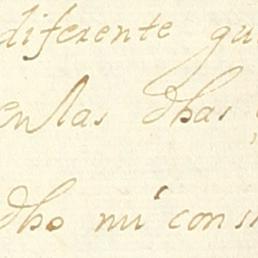 diferente gu
en las dhas
dho mi cons